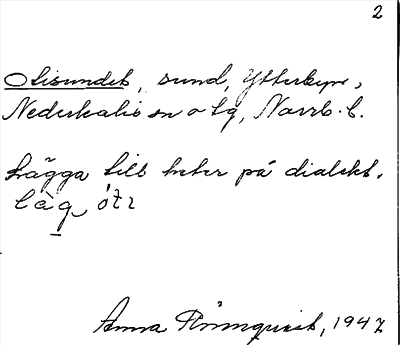 2
Otisundet, sund, Ytterbyn,
Nederkalix sn o tg, Norrb. l.
Lägga till heter på dialekt.
låg ótı
Anna Rönnqvist, 1947